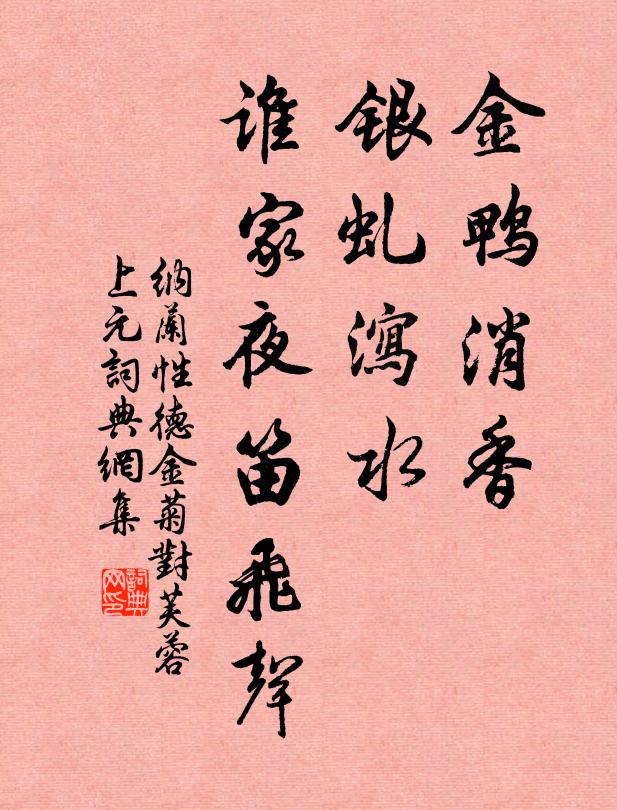 金鸭消香
银虬瀉水
谁家夜笛飛聲
纳蘭性德金菊對芙蓉
上元詞典網集
詞典
网印